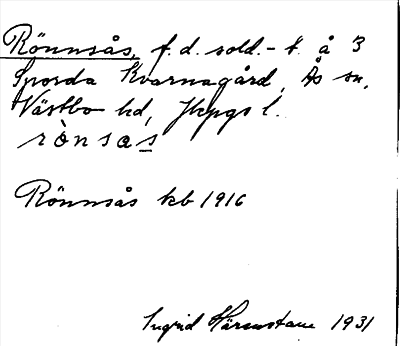 Rönnsås, f.d. sold.-t. å 3
Sporda Kvarnagård, Ås sn.
Västbo hd, Jkpgs l.
rònsas
Rönnsås kb 1916
Ingrid 1931